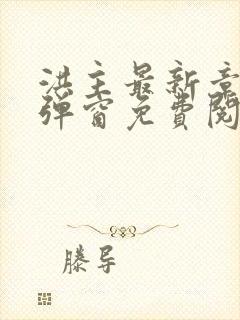 洪主最新章
弹窗免費閱
滕导